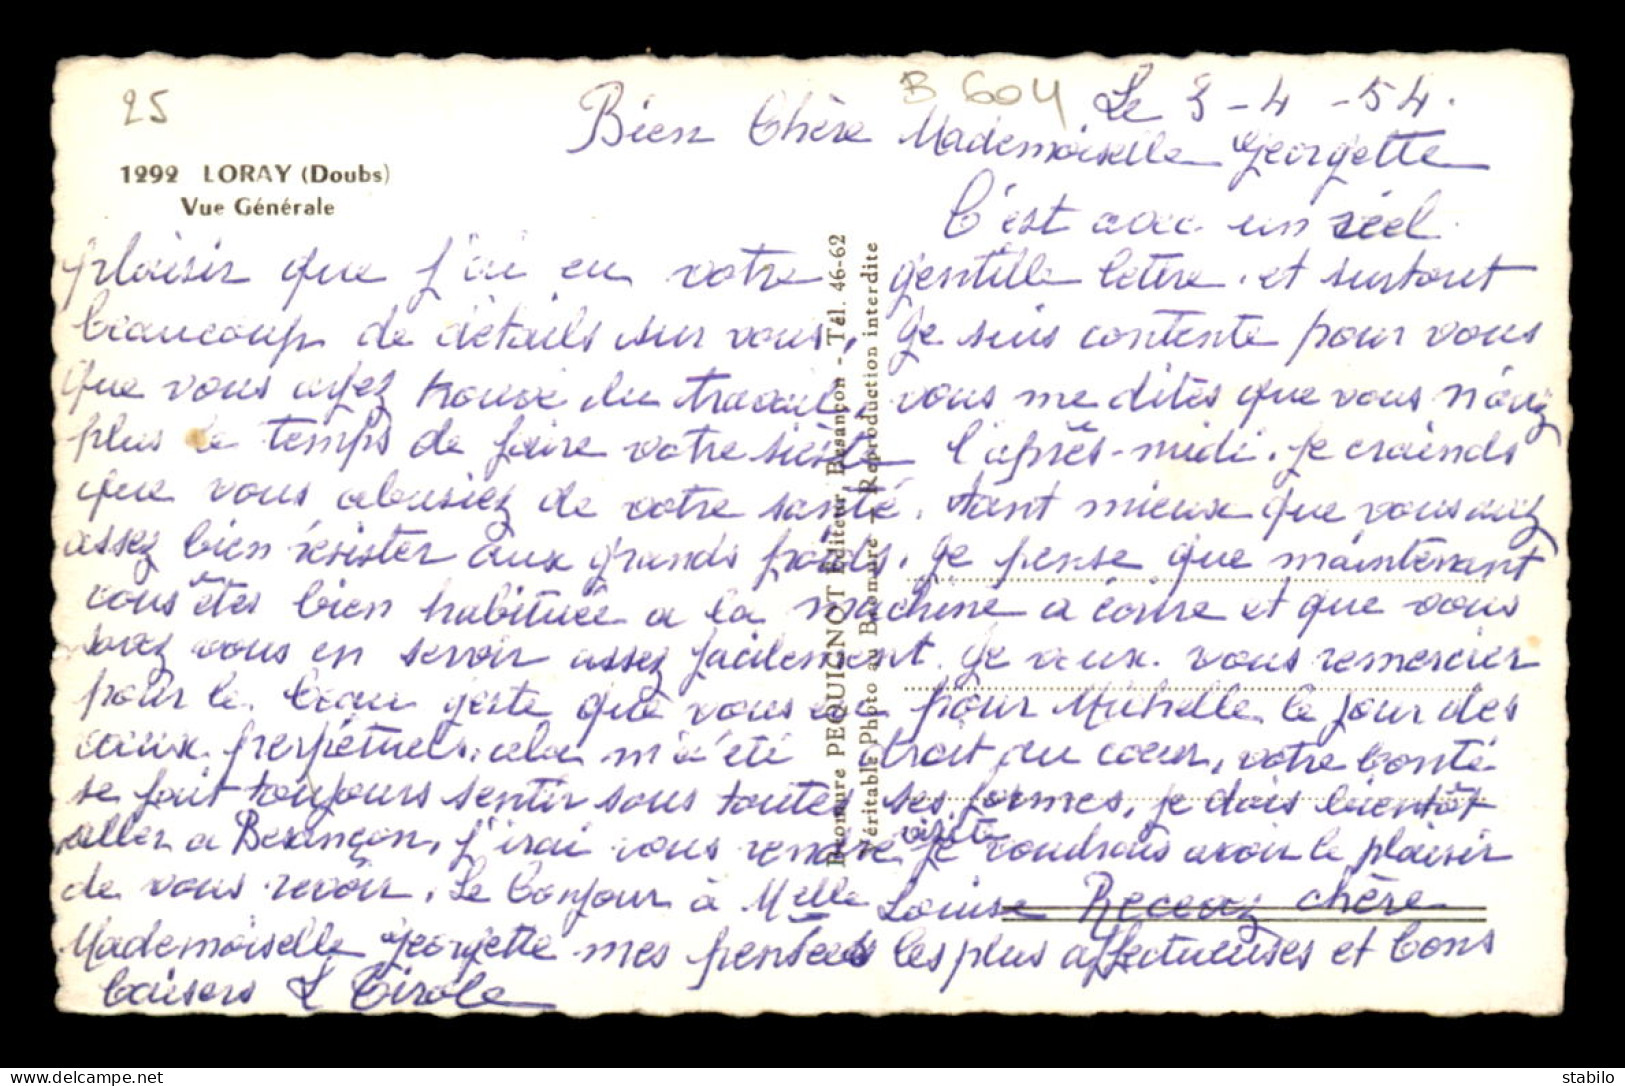 25
B 604
Le 8-4-54.
1292 LORAY (Doubs)
Vue Générale
Bien Chère Mademoiselle Georgette
C'est avec un réel
plaisir que j'ai eu votre gentille lettre. et surtout
beaucoup de détails sur vous, je suis contente pour vous
que vous ayez trouvé du travail, vous me dites que vous n'avez
plus le temps de faire votre sieste l'après-midi. Je crainds
que vous abusiez de votre santé. tant mieux que vous avez
assez bien résister aux grands froids. je pense que maintenant
vous êtes bien habituée a la machine a écrire et que vous
savez vous en servir assez facilement. je veux vous remercier
pour le beau geste que vous pour Michelle le jour des
voeux perpétuels, cela m'a été droit au coeur, votre bonté
se fait toujours sentir sous toute ses formes, je dois bientôt
aller a Besançon, j'irai vous rendre visite je voudrais avoir le plaisir
de vous revoir. Le bonjour à Melle Louise Recevez chère
Mademoiselle Georgette mes pensées les plus affectueuses et bons
baisers
Bromure PEQUIGNOT Editeur Besançon - Tél. 46-62
Véritable Photo au Bromure - Reproduction interdite
stabilo